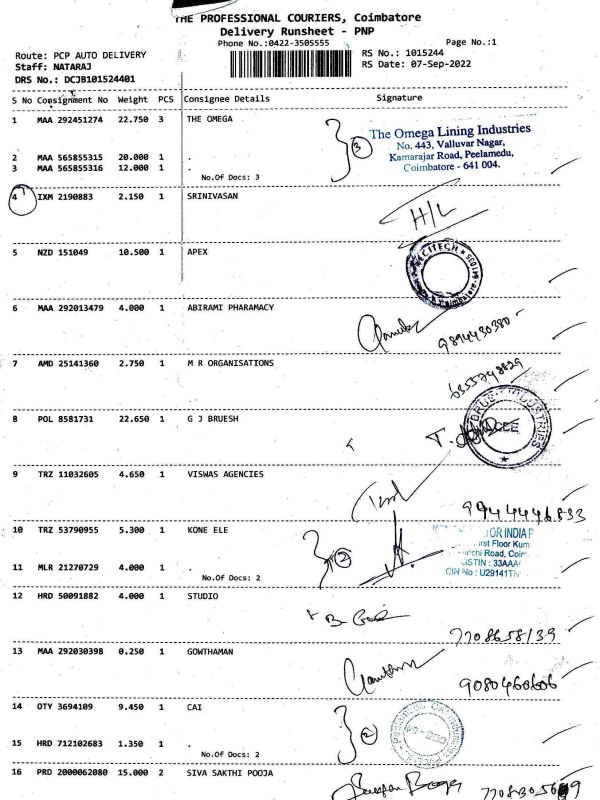 THE PROFESSIONAL COURIERS, Coimbatore
Delivery Runsheet - PNP
Phone No.:0422-3505555 Page No.:1
Route: PCP AUTO DELIVERY RS No.: 1015244
Staff: NATARAJ RS Date: 07-Sep-2022
DRS No.: DCJB101524401
S No Consignment No Weight PCS Consignee Details Signature
1 MAA 292451274 22.750 3 THE OMEGA
The Omega Lining Industries
No. 443, Valluvar Nagar,
Kamarajar Road, Peelamedu,
Coimbatore - 641 004.
3
2 MAA 565855315 20.000 1 .
3 MAA 565855316 12.000 1 .
No.Of Docs: 3
4 IXM 2190883 2.150 1 SRINIVASAN
H/L
5 NZD 151049 10.500 1 APEX
6 MAA 292013479 4.000 1 ABIRAMI PHARAMACY
9894430380
7 AMD 25141360 2.750 1 M R ORGANISATIONS
6355748829
8 POL 8581731 22.650 1 G J BRUESH
9 TRZ 11032605 4.650 1 VISWAS AGENCIES
9944446833
10 TRZ 53790955 5.300 1 KONE ELE
2
OR INDIA P
irst Floor Kum
Road, Coim
GSTIN : 33AAA
CIN No : U29141T
11 MLR 21270729 4.000 1 .
No.Of Docs: 2
12 HRD 50091882 4.000 1 STUDIO
7708658139
13 MAA 292030398 0.250 1 GOWTHAMAN
9080460606
14 OTY 3694109 9.450 1 CAI
2
15 HRD 712102683 1.350 1 .
No.Of Docs: 2
16 PRD 2000062080 15.000 2 SIVA SAKTHI POOJA